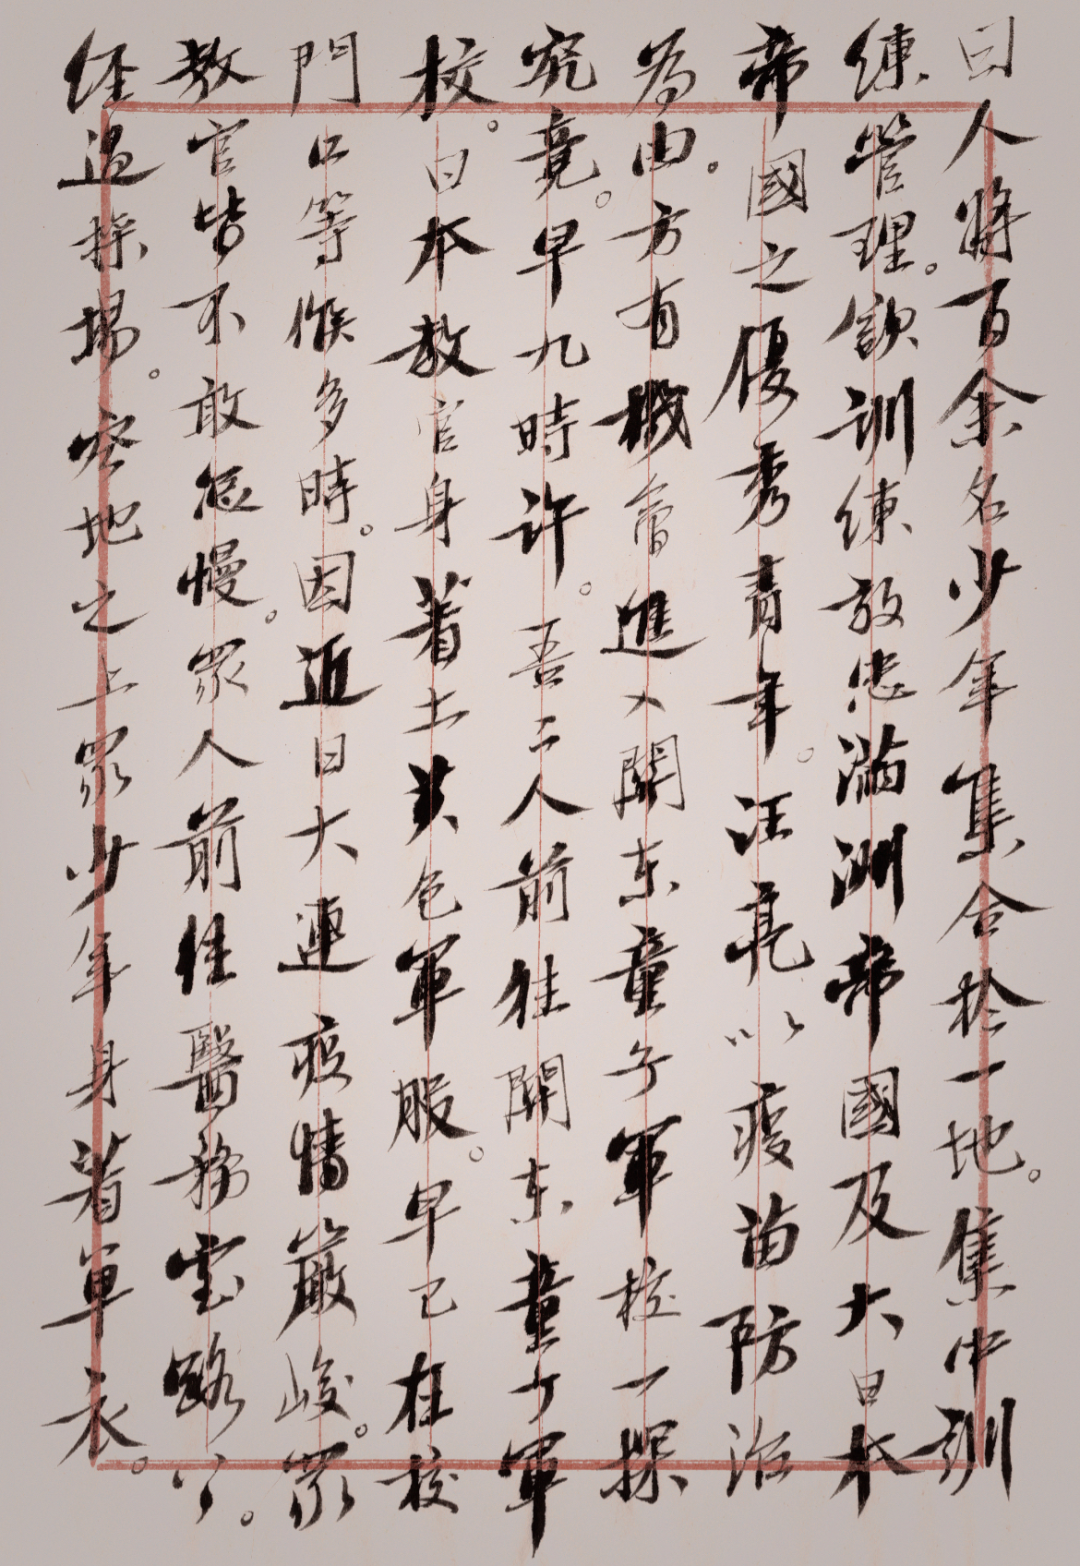 日人將百余名少年集合於一地。集中訓
練管理。欲訓練效忠滿洲帝國及大日本
帝國之優秀青年。汪亮以疫苗防治
為由。方有機會進入關東童子軍校一探
究竟。早九時許。吾二人前往關東童子軍
校。日本教官身着土黃色軍服。早已在校
門口等候多時。因近日大連疫情嚴峻。眾
教官皆不敢怠慢。眾人前往醫務室路。
經過操場。空地之上眾少年身着單衣。